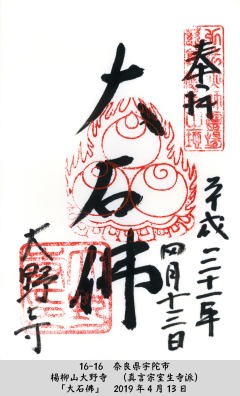 奉拝
大石佛
平成三十一年
四月十三日
大野寺
16-16　奈良県宇陀市
楊柳山大野寺　（真言宗室生寺派）
「大石佛」　2019年4月13日